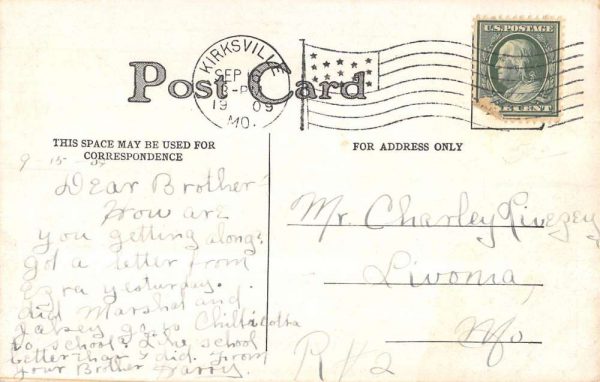 KIRKSVILLE
SEP
19 09
MO.
U.S. POSTAGE
Post Card
THIS SPACE MAY BE USED FOR
CORRESPONDENCE
FOR ADDRESS ONLY
9-15-
Dear Brother
How are
you getting along?
gd a letter from
Ezra yesterday.
did Marshal and
go to
to school? Like school
better than I did. From
your Brother Harry.
Mr. Charley Livezey
Livonia,
Mo
R #2